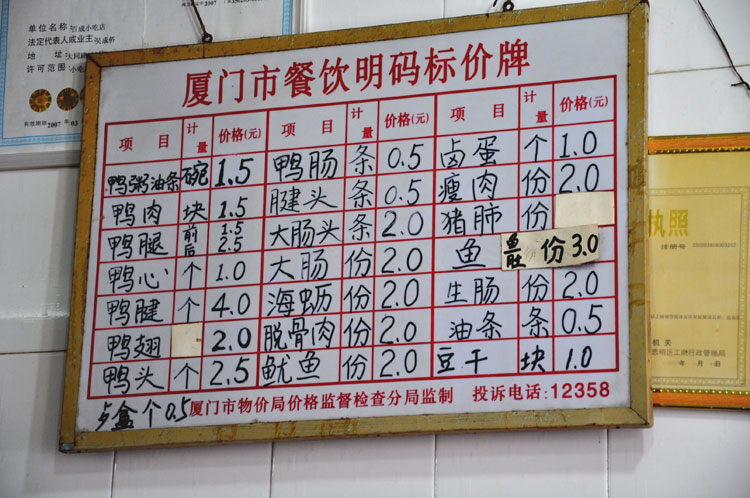 单位名称
成小吃店
法定代表人或业主
地 址
许可范围
2007
厦门市餐饮明码标价牌
项 目 计量 价格(元) 项 目 计量 价格(元) 项 目 计量 价格(元)
鸭粥油条 碗 1.5 鸭肠 条 0.5 卤蛋 个 1.0
鸭肉 块 1.5 腱头 条 0.5 瘦肉 份 2.0
鸭腿 前后 1.5 2.5 大肠头 条 2.0 猪肺 份
鸭心 个 1.0 大肠 份 2.0 鱼 鱼肚 份 3.0
鸭腱 个 4.0 海蛎 份 2.0 生肠 份 2.0
鸭翅 2.0 脱骨肉 份 2.0 油条 条 0.5
鸭头 个 2.5 鱿鱼 份 2.0 豆干 块 1.0
盒 个 0.5
厦门市物价局价格监督检查分局监制 投诉电话:12358
执照
注册号
机 关